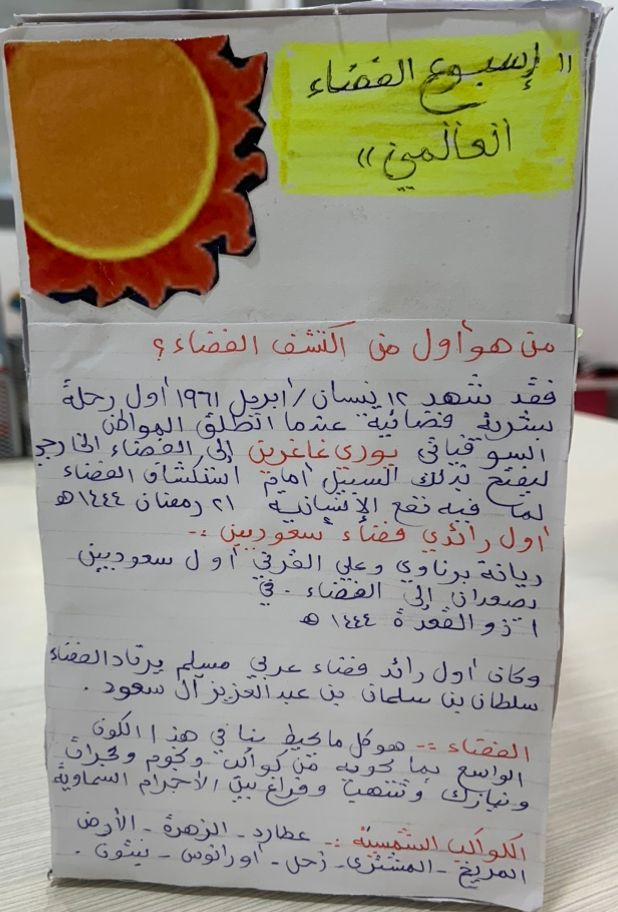 " إسبوع الفضاء
العالمي "
من هو أول من اكتشف الفضاء ؟
فقد شهد ١٢ نيسان / أبريل ١٩٦١ أول رحلة
بشرية فضائية عندما انطلق المواطن
السوفياتي يوري غاغرين إلى الفضاء الخارجي
ليفتح بذلك السبيل أمام استكشاف الفضاء
لما فيه نفع الإنسانية ٢١ رمضان ١٤٤٤ هـ
أول رائدي فضاء سعوديين :-
ريانة برناوي وعلي القرني أول سعوديين
يصعدان إلى الفضاء . في
١ ذو القعدة ١٤٤٤ هـ
وكان أول رائد فضاء عربي مسلم يرتاد الفضاء
سلطان بن سلمان بن عبدالعزيز آل سعود .
الفضاء :- هو كل ما يحيط بنا في هذا الكون
الواسع بما يحويه من كواكب ونجوم ومجرات
ونيازك وشهب وفراغ بين الأجرام السماوية
الكواكب الشمسية :- عطارد - الزهرة - الأرض
المريخ - المشتري - زحل - أورانوس - نبتون .